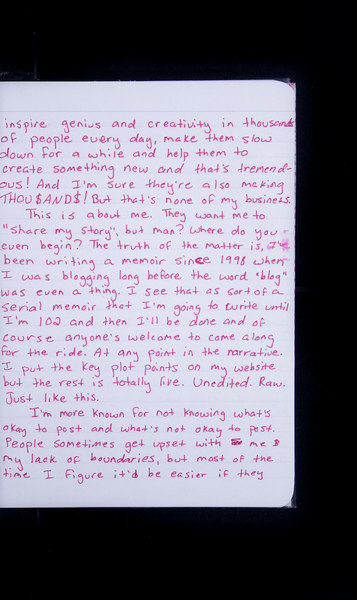 inspire genius and creativity in thousands
of people every day, make them slow
down for a while and help them to
create something new and that's tremend-
ous! And I'm sure they're also making
THOU$AND$! But that's none of my business.
This is about me. They want me to
"share my story", but man? Where do you
even begin? The truth of the matter is, I've
been writing a memoir since 1998 when
I was blogging long before the word "blog"
was even a thing. I see that as sort of a
serial memoir that I'm going to write until
I'm 102 and then I'll be done and of
course anyone's welcome to come along
for the ride. At any point in the narrative.
I put the key plot points on my website
but the rest is totally live. Unedited. Raw.
Just like this.
I'm more known for not knowing what's
okay to post and what's not okay to post.
People sometimes get upset with me &
my lack of boundaries, but most of the
time I figure it'd be easier if they